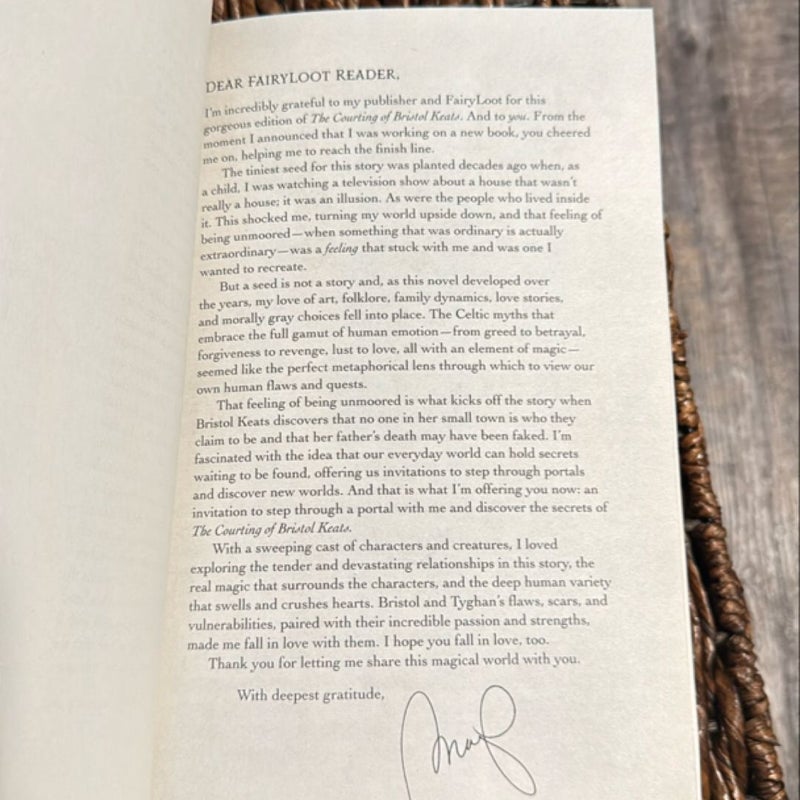 DEAR FAIRYLOOT READER,
I'm incredibly grateful to my publisher and FairyLoot for this
gorgeous edition of The Courting of Bristol Keats. And to you. From the
moment I announced that I was working on a new book, you cheered
me on, helping me to reach the finish line.
The tiniest seed for this story was planted decades ago when, as
a child, I was watching a television show about a house that wasn't
really a house; it was an illusion. As were the people who lived inside
it. This shocked me, turning my world upside down, and that feeling of
being unmoored—when something that was ordinary is actually
extraordinary—was a feeling that stuck with me and was one I
wanted to recreate.
But a seed is not a story and, as this novel developed over
the years, my love of art, folklore, family dynamics, love stories,
and morally gray choices fell into place. The Celtic myths that
embrace the full gamut of human emotion—from greed to betrayal,
forgiveness to revenge, lust to love, all with an element of magic—
seemed like the perfect metaphorical lens through which to view our
own human flaws and quests.
That feeling of being unmoored is what kicks off the story when
Bristol Keats discovers that no one in her small town is who they
claim to be and that her father's death may have been faked. I'm
fascinated with the idea that our everyday world can hold secrets
waiting to be found, offering us invitations to step through portals
and discover new worlds. And that is what I'm offering you now: an
invitation to step through a portal with me and discover the secrets of
The Courting of Bristol Keats.
With a sweeping cast of characters and creatures, I loved
exploring the tender and devastating relationships in this story, the
real magic that surrounds the characters, and the deep human variety
that swells and crushes hearts. Bristol and Tyghan's flaws, scars, and
vulnerabilities, paired with their incredible passion and strengths,
made me fall in love with them. I hope you fall in love, too.
Thank you for letting me share this magical world with you.
With deepest gratitude,